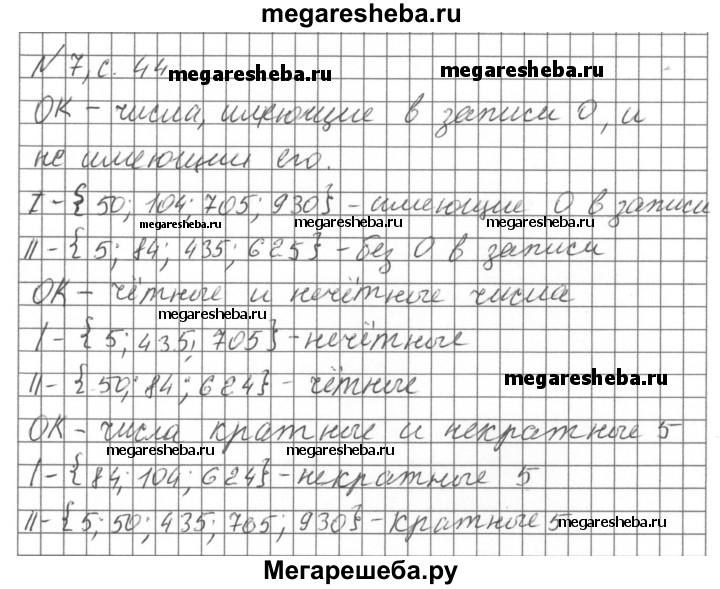 megaresheba.ru
№ 7, с. 44
megaresheba.ru
megaresheba.ru
ОК – числа, имеющие в записи 0, и
не имеющии его.
I – {50; 104; 705; 930} – имеющие 0 в записи
megaresheba.ru megaresheba.ru megaresheba.ru
II – {5; 84; 435; 625} – без 0 в записи
ОК – чётные и нечётные числа
megaresheba.ru
I – {5; 435; 705} – нечётные
II – {50; 84; 624} – чётные
megaresheba.ru
ОК – числа кратные и некратные 5
megaresheba.ru megaresheba.ru
I – {84; 104; 624} – некратные 5
II – {5; 50; 435; 705; 930} – кратные 5
megaresheba.ru
Мегарешеба.ру